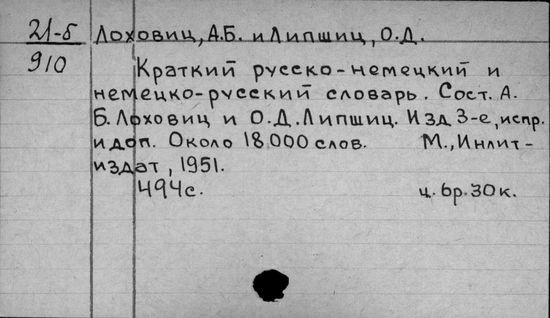 21-5 Лоховиц, А.Б. и Липшиц, О.Д.
910 Краткий русско-немецкий и
немецко-русский словарь. Сост. А.
Б. Лоховиц и О.Д. Липшиц. Изд 3-е, испр.
и доп. Около 18000 слов. М., Инлит-
издат, 1951.
494с. ц. 6р. 30к.